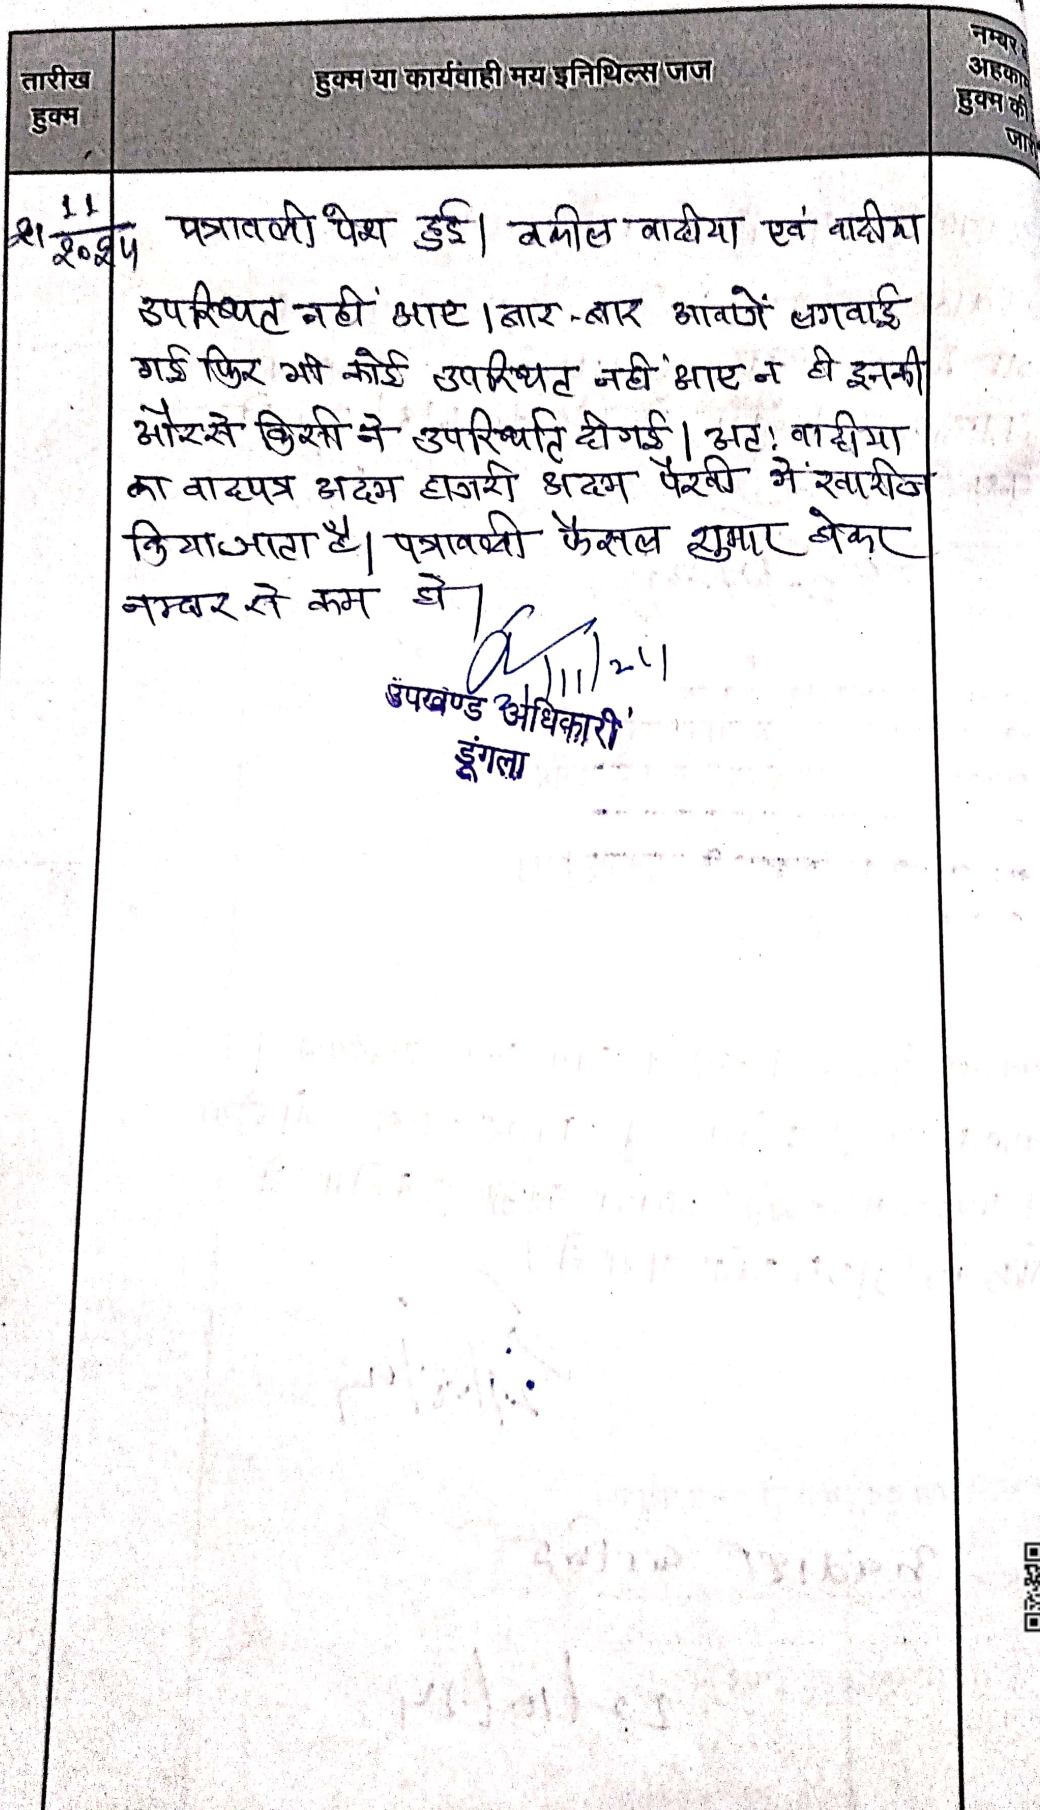 तारीख
हुक्म
हुक्म या कार्यवाही मय इनिथिल्स जज
नम्बर
अहकाम
हुक्म की
जारी
21 11 2024
पत्रावली पेश हुई। वकील वादीया एवं वादीया
उपस्थित नहीं आए। बार-बार आवाजें लगवाई
गई फिर भी कोई उपस्थित नहीं आए न ही इनकी
और से किसी ने उपस्थिति दी गई। अतः वादीया
का वादपत्र अदम हाजरी अदम पैरवी में खारीज
किया जाता है। पत्रावली फैसल शुमार होकर
नम्बर से कम हो।
21/11/24
उपखण्ड अधिकारी
डूंगला